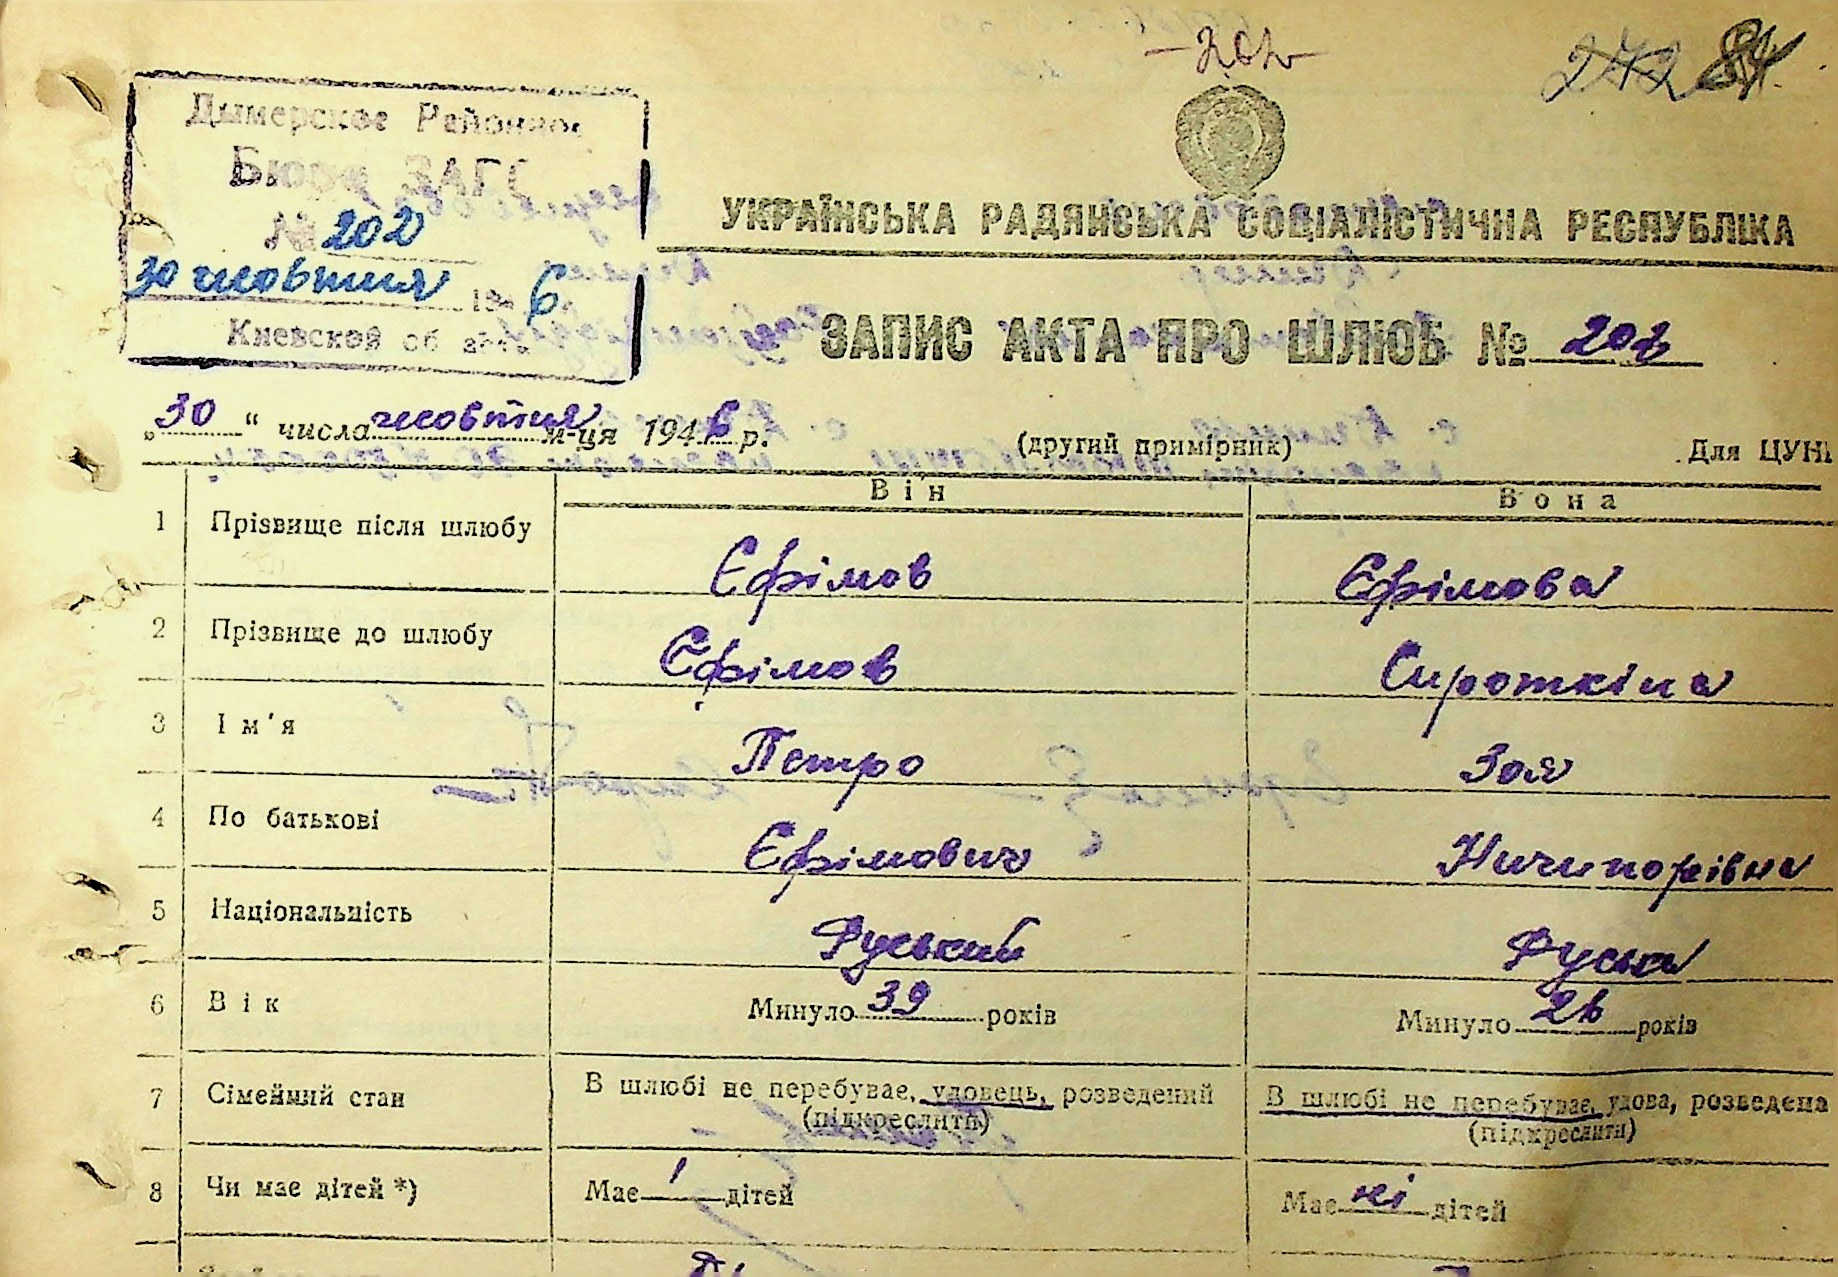 -202-
272 84
Дымерское Районное
Бюро ЗАГС
№ 202
30 жовтня 194 6
Киевской области
УКРАЇНСЬКА РАДЯНСЬКА СОЦІАЛІСТИЧНА РЕСПУБЛІКА
ЗАПИС АКТА ПРО ШЛЮБ № 202
„30“ числа жовтня м-ця 1946 р. (другий примірник) Для ЦУНГ
Він Вона
1 Прізвище після шлюбу Єфімов Єфімова
2 Прізвище до шлюбу Єфімов Сироткіна
3 Ім'я Петро Зоя
4 По батькові Єфімович Ничипорівна
5 Національність Руський Руська
6 Вік Минуло 39 років Минуло 26 років
7 Сімейний стан В шлюбі не перебуває, удовець, розведений В шлюбі не перебуває, удова, розведена
(підкреслити) (підкреслити)
8 Чи має дітей *) Має 1 дітей Має ні дітей